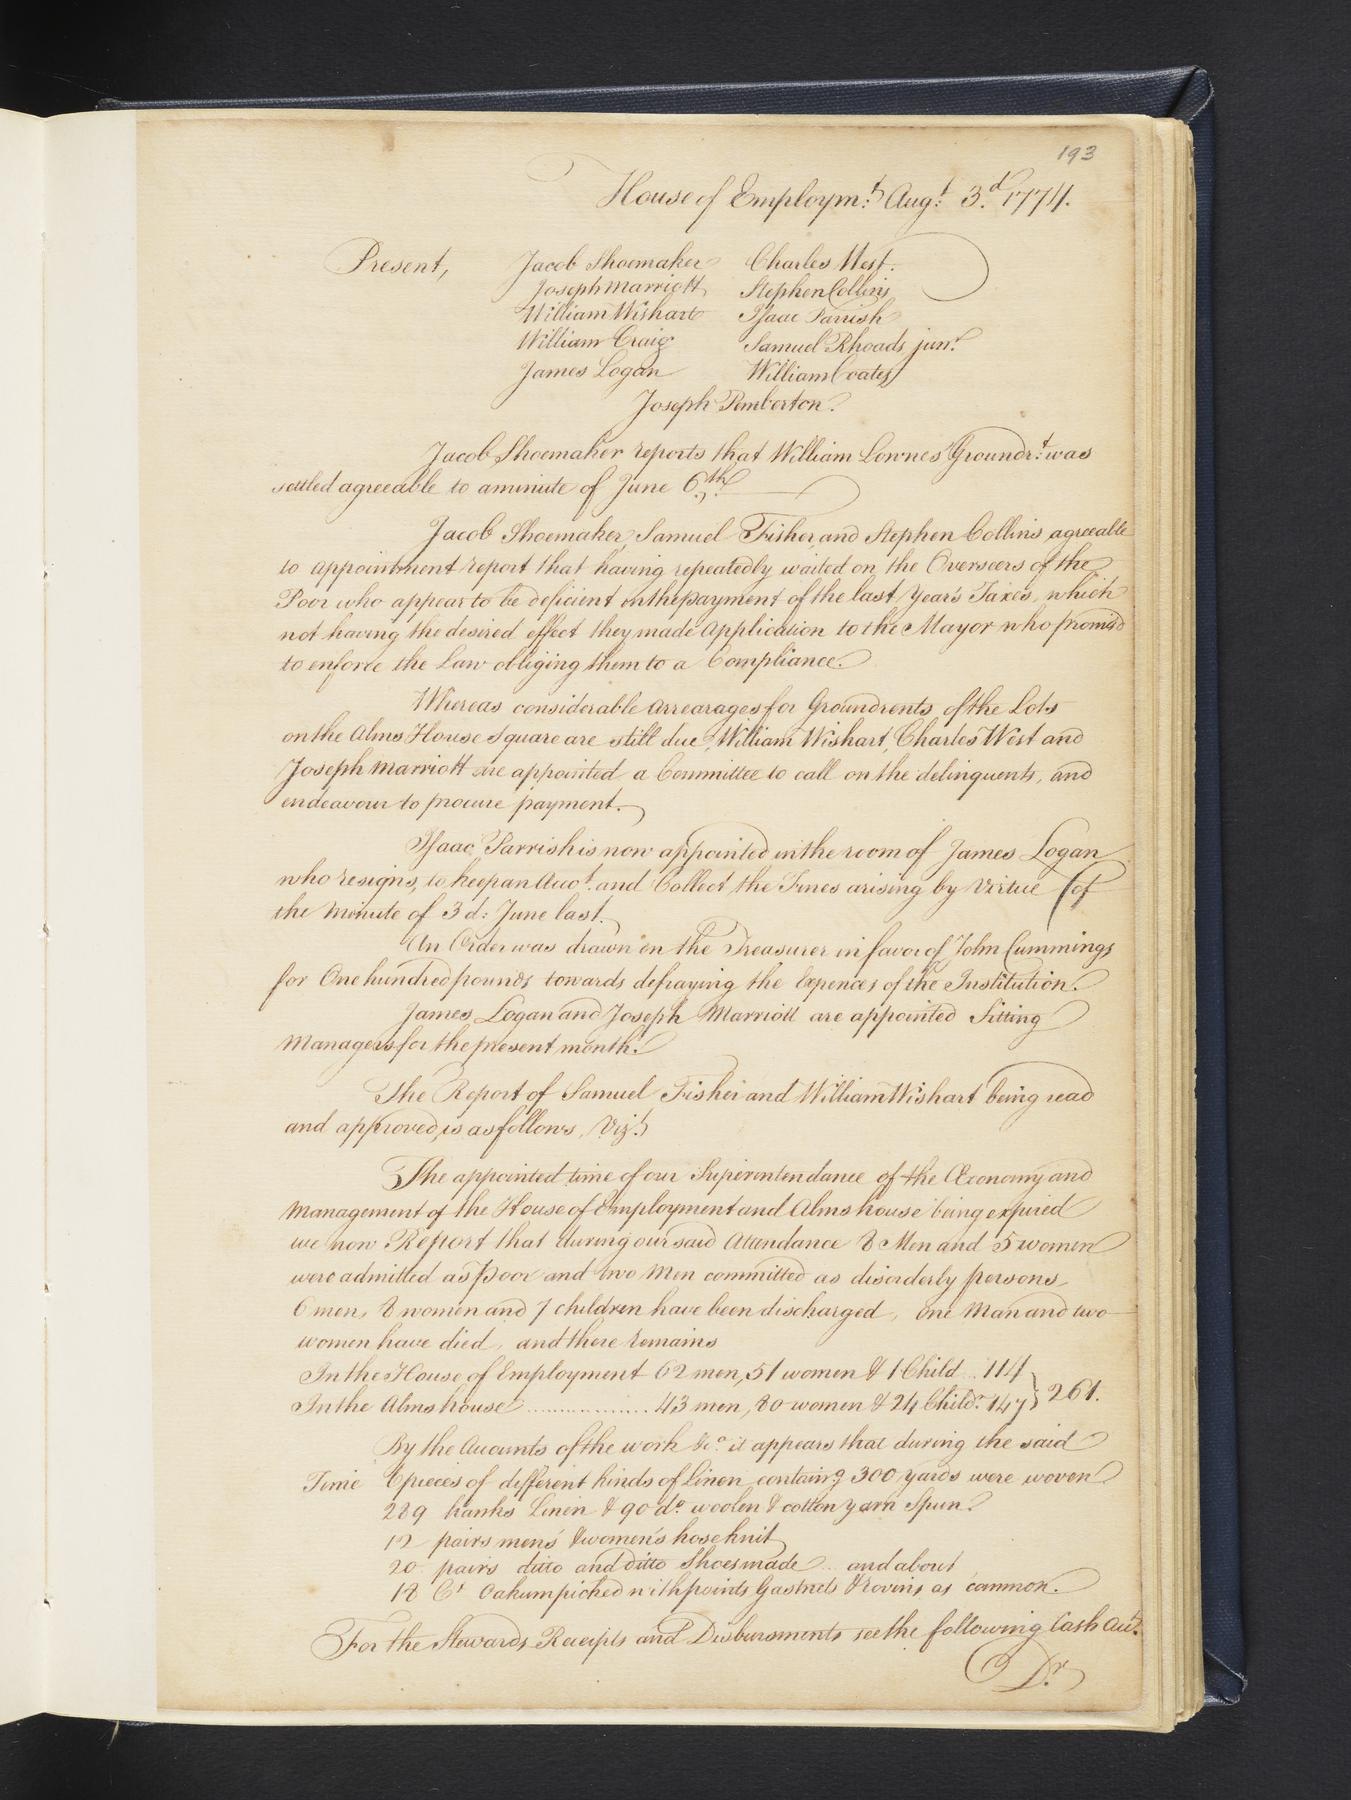 193
House of Employmt. Augt. 3d. 1774.
Present, Jacob Shoemaker Charles West.
Joseph Marriott Stephen Collins
William Wishart Isaac Parrish
William Craig Samuel Rhoads junr.
James Logan William Coates
Joseph Pemberton.
Jacob Shoemaker reports that William Lownes Groundrt. was
settled agreeable to a minute of June 6th.
Jacob Shoemaker, Samuel Fisher, and Stephen Collins, agreeable
to appointment report that having repeatedly waited on the Overseers of the
Poor who appear to be deficient in the payment of the last Year's Taxes, which
not having the desired effect they made Application to the Mayor who promis'd
to enforce the Law obliging them to a Compliance.
Whereas considerable Arrearages for Groundrents of the Lots
on the Alms House Square are still due, William Wishart, Charles West and
Joseph Marriott are appointed a Committee to call on the delinquents, and
endeavour to procure payment.
Isaac Parrish is now appointed in the room of James Logan
who resigns, to keep an Accot. and Collect the Fines arising by Virtue (of
the Minute of 3d: June last.
An Order was drawn on the Treasurer in favor of John Cummings
for One hundred pounds towards defraying the Expences of the Institution.
James Logan and Joseph Marriott are appointed Sitting
Managers for the present month.
The Report of Samuel Fisher and William Wishart being read
and approved, is as follows, Vizt.
The appointed time of our Superintendance of the Œconomy and
Management of the House of Employment and Alms house being expired
we now Report that during our said Attendance 8 Men and 5 women
were admitted as poor and two Men committed as disorderly persons,
6 men, 8 women and 7 children have been discharged, one Man and two
women have died, and there remains
In the House of Employment 62 men, 51 women & 1 Child .. 114
In the Alms house ................. 43 men, 80 women & 24 Childn. 147 } 261.
By the Accounts of the work &c. it appears that during the said
Time 6 pieces of different kinds of Linen containg. 300 yards were woven
289 hanks Linen & 90 do. woolen & cotten yarn Spun.
12 pairs mens & women's hose knit
20 pairs ditto and ditto Shoes made .. and about
18 Ct. Oakum picked with points Gaskets & rovins as common.
For the Stewards Receipts and Disbursments see the following Cash Acct.
Dr.